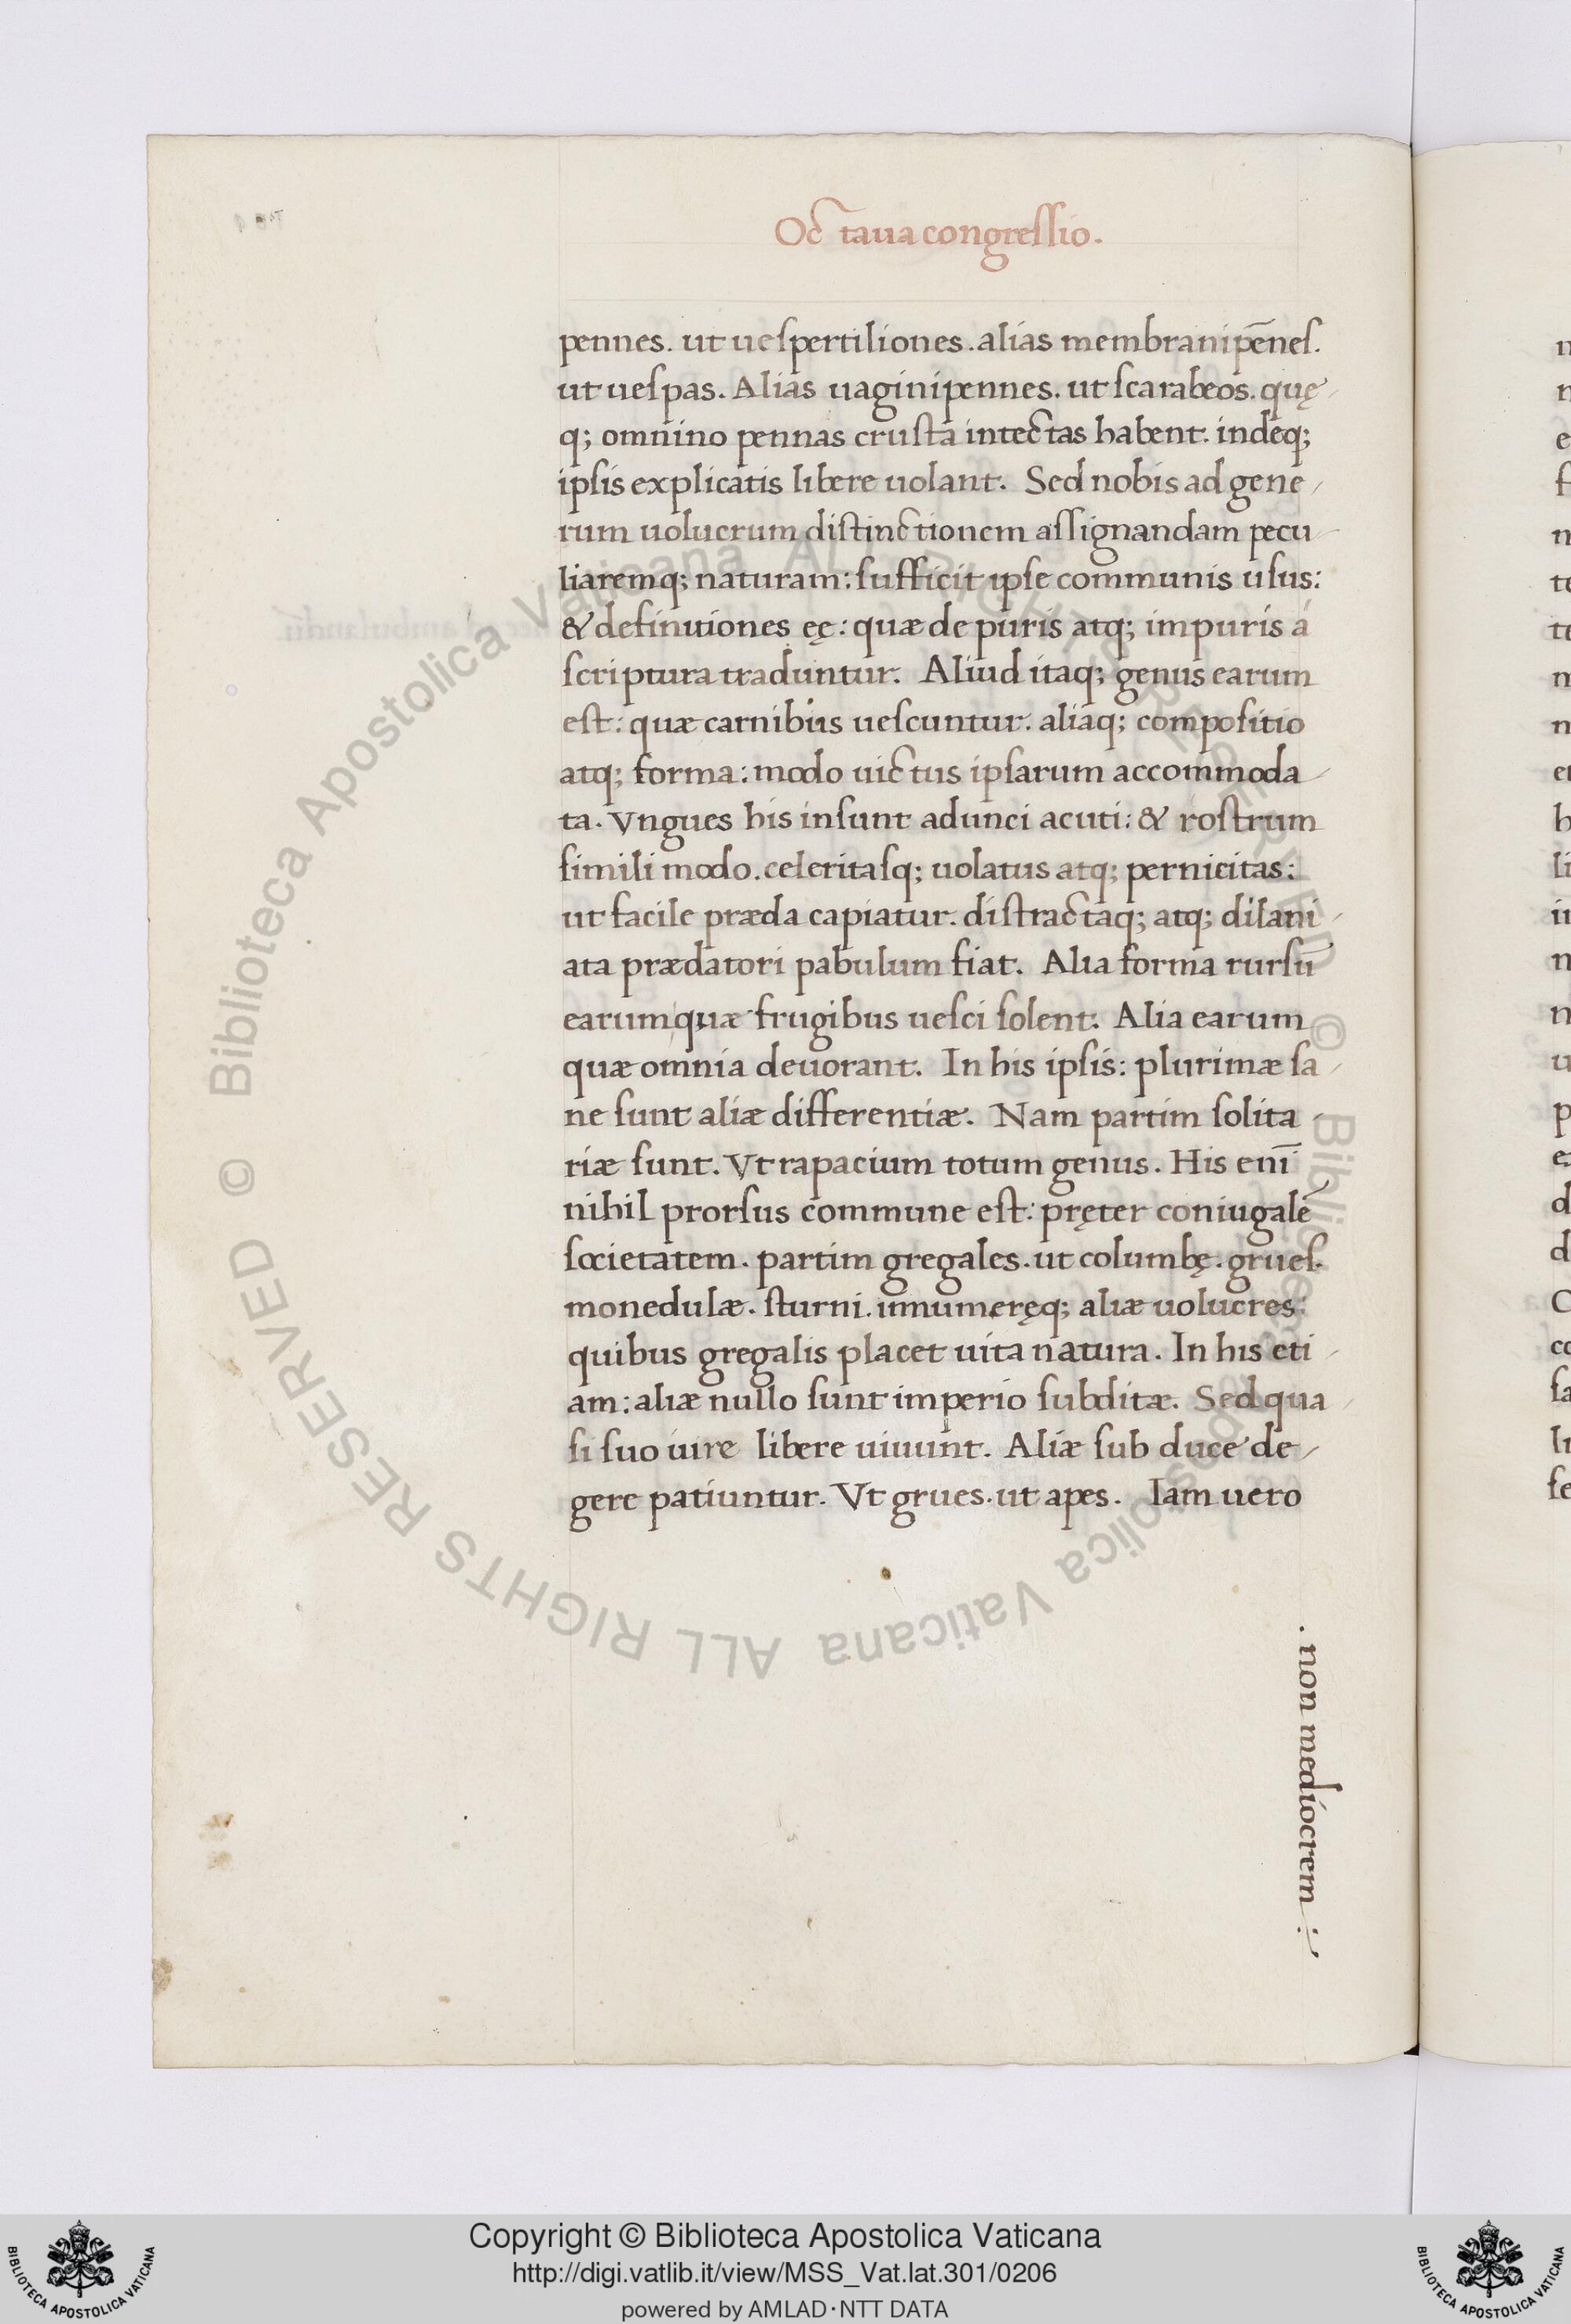 Octaua congressio.
pennes. ut uespertiliones. alias membranipēnes.
ut uespas. Alias uaginipennes. ut scarabeos. quę
q; omnino pennas crusta intectas habent. indeq;
ipsis explicatis libere uolant. Sed nobis ad gene
rum uolucrum distinctionem assignandam pecu
liaremq; naturam: sufficit ipse communis usus:
& definitiones eę: quæ de puris atq; impuris á
scriptura traduntur. Aliud itaq; genus earum
est: quæ carnibus uescuntur. aliaq; compositio
atq; forma: modo uictus ipsarum accommoda
ta. Vngues his insunt adunci acuti: & rostrum
simili modo. celeritasq; uolatus atq; pernicitas:
ut facile præda capiatur. distractaq; atq; dilani
ata prædatori pabulum fiat. Alia forma rursū
earum quæ frugibus uesci solent. Alia earum
quæ omnia deuorant. In his ipsis: plurimæ sa
ne sunt aliæ differentiæ. Nam partim solita
riæ sunt. Vt rapacium totum genus. His enī
nihil prorsus commune est: pręter coniugalē
societatem. partim gregales. ut columbę. grues.
monedulæ. sturni. innumeręq; aliæ uolucres:
quibus gregalis placet uita natura. In his eti
am: aliæ nullo sunt imperio subditæ. Sed qua
si suo iure libere uiuunt. Aliæ sub duce de
gere patiuntur. Vt grues. ut apes. Iam uero
. non mediocrem :
© Biblioteca Apostolica Vaticana ALL RIGHTS RESERVED © Biblioteca Apostolica Vaticana ALL RIGHTS RESERVED
Copyright © Biblioteca Apostolica Vaticana
http://digi.vatlib.it/view/MSS_Vat.lat.301/0206
powered by AMLAD·NTT DATA
BIBLIOTECA APOSTOLICA VATICANA
BIBLIOTECA APOSTOLICA VATICANA